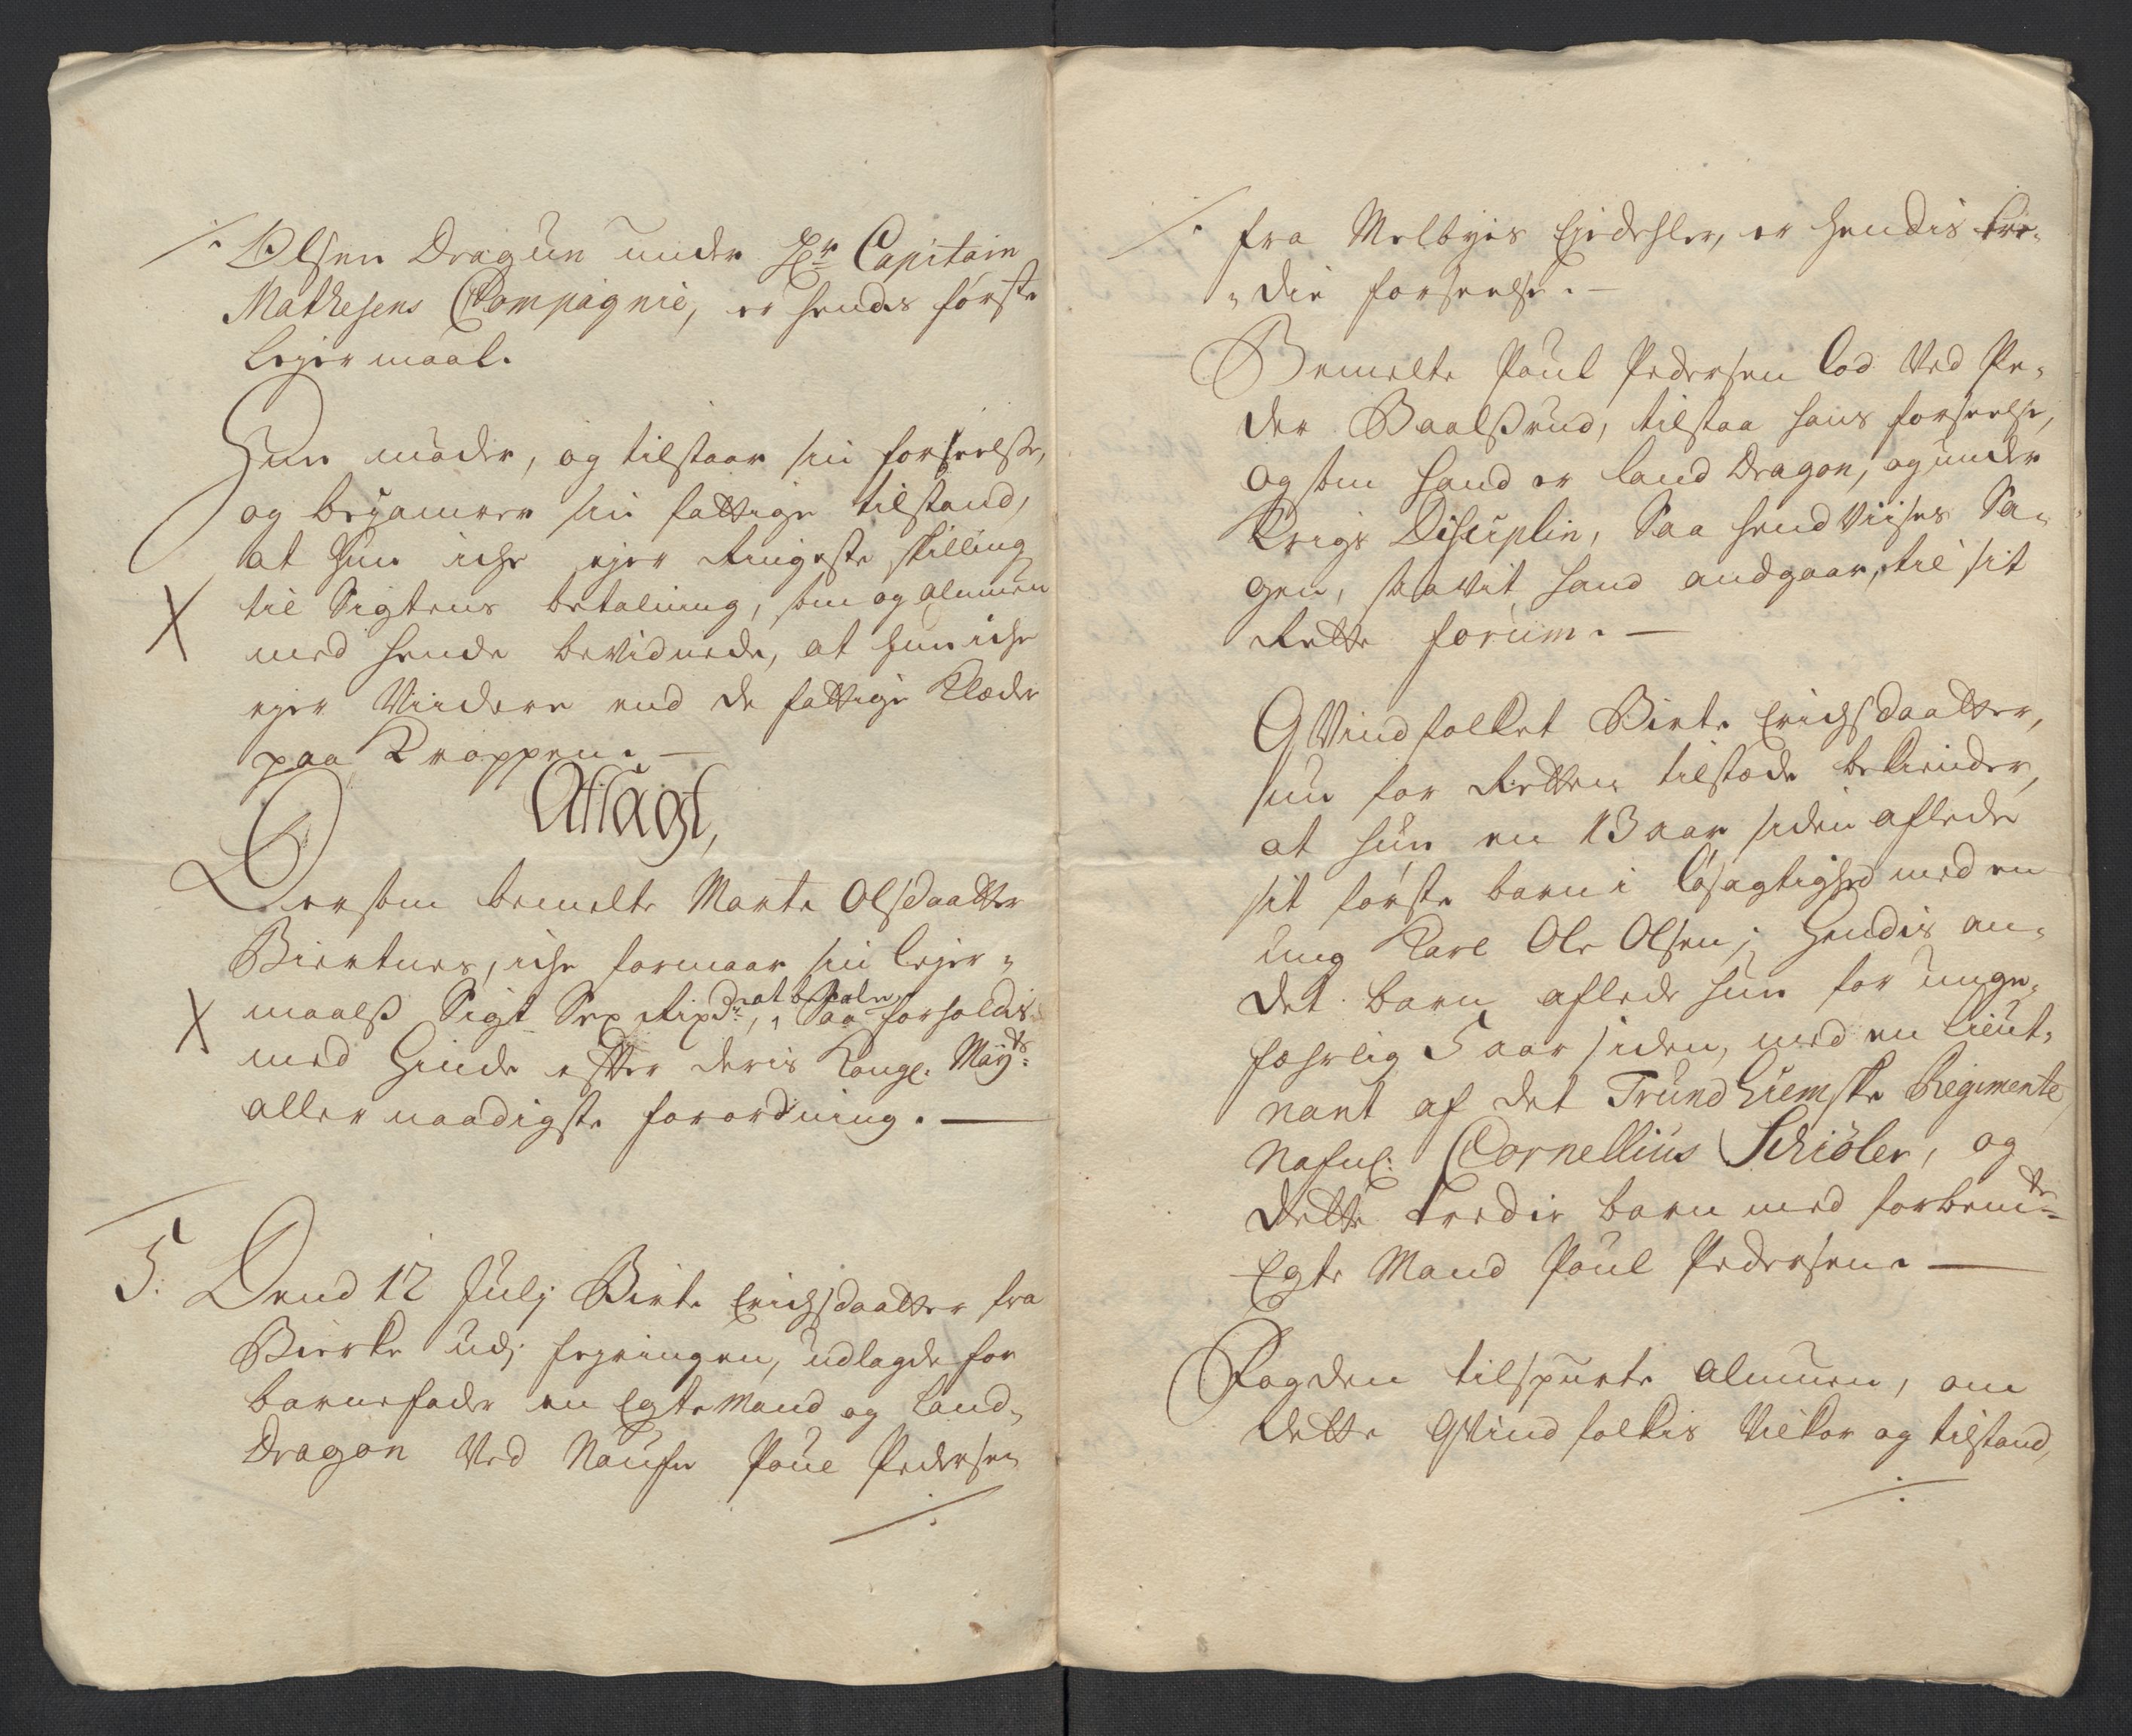 ⁒ Olsen Dragun under Hr Capitain
Mathesens Compagnie, er hendes første
lejermaal.
Hun møder, og tilstaar sin forseelse,
og bejamrer sin fattige tilstand,
at hun iche ejer Ringeste skilling
X til Sigtens betalning, som og Almuen
med hende bevidnede, at hun iche
ejer Viidere end de fattige Klæder
paa Kroppen. —
Afsagt,
Dersom bemelte Marte Olsdaatter
Biertnes, iche formaar sin lejer-
X maalss Sigt Sex Rixdr, at betale, Saa forholdis
med Hinde efter deris Kongl: Mayts:
allernaadigste forordning. —
5. Dend 12 Julj Birte Erichsdaatter fra
Bierke udj hegningen, udlagde for
barnefader en Egtemand og land-
Dragon Ved Naufn Poul Pedersen
⁒
⁒ fra Melbyes Ejedehler, er hendis tre-
die forseelse. —
Bemelte Poul Pedersen lod Ved Pe-
der Baalssrud, tilstaa hans forseelse,
og som hand er land Dragon, og under
Krigs Disciplin, Saa hendViises Sa-
gen, saavit hand andgaar, til sit
Rette forum. —
QVindfolket Birte Erichsdaatter,
nu for Retten tilstæde bekiender,
at hun en 13 aar siden aflede
sit første barn i løsagtighed med en
ung Karl Ole Olsen; Hendis an-
det barn aflede hun for unge-
fehrlig 5 aar siden, med en lieut-
nant af det Trundhiemske Regimente,
Nafnl: Cornellius Schiøler, og
dette tredie barn med forbemte
Egte Mand Poul Pedersen. —
Fogden tilspurte Almuen, om
dette QVindfolkis Vilkor og tilstand,
⁒